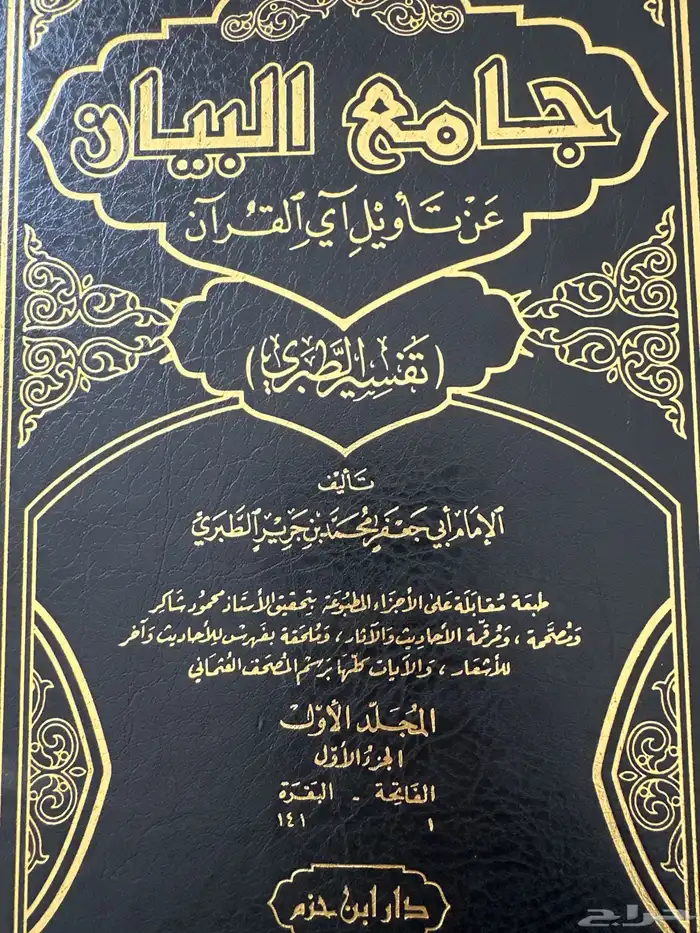 جامع البيان
عَنْ تَأْوِيْلِ آيِ القُرآن
(تَفْسِيرُ الطَّبَرِي)
تَأليفُ
الإمَام أَبي جَعْفَر مُحَمَّد بن جَرِيْر الطَّبَرِيّ
طبعَة مُقابَلَة عَلى الأجزَاء المطبُوعَة بتَحقِيق الأسْتَاذ محمُود شَاكِر
وَمُصَحَّحَة، وَمُرقَّمة الأحَاديث وَالآثار، وَمُلحَقة بفَهرسْ للأحَاديث وَآخر
للأشعَار، وَالآيات كلّها بَرسْم المُصحَف العُثماني
المُجَلّد الأوّل
الجزءُ الأوّل
الفَاتِحَة - البَقَرَة
١ ١٤١
دار ابن حزم
حراج